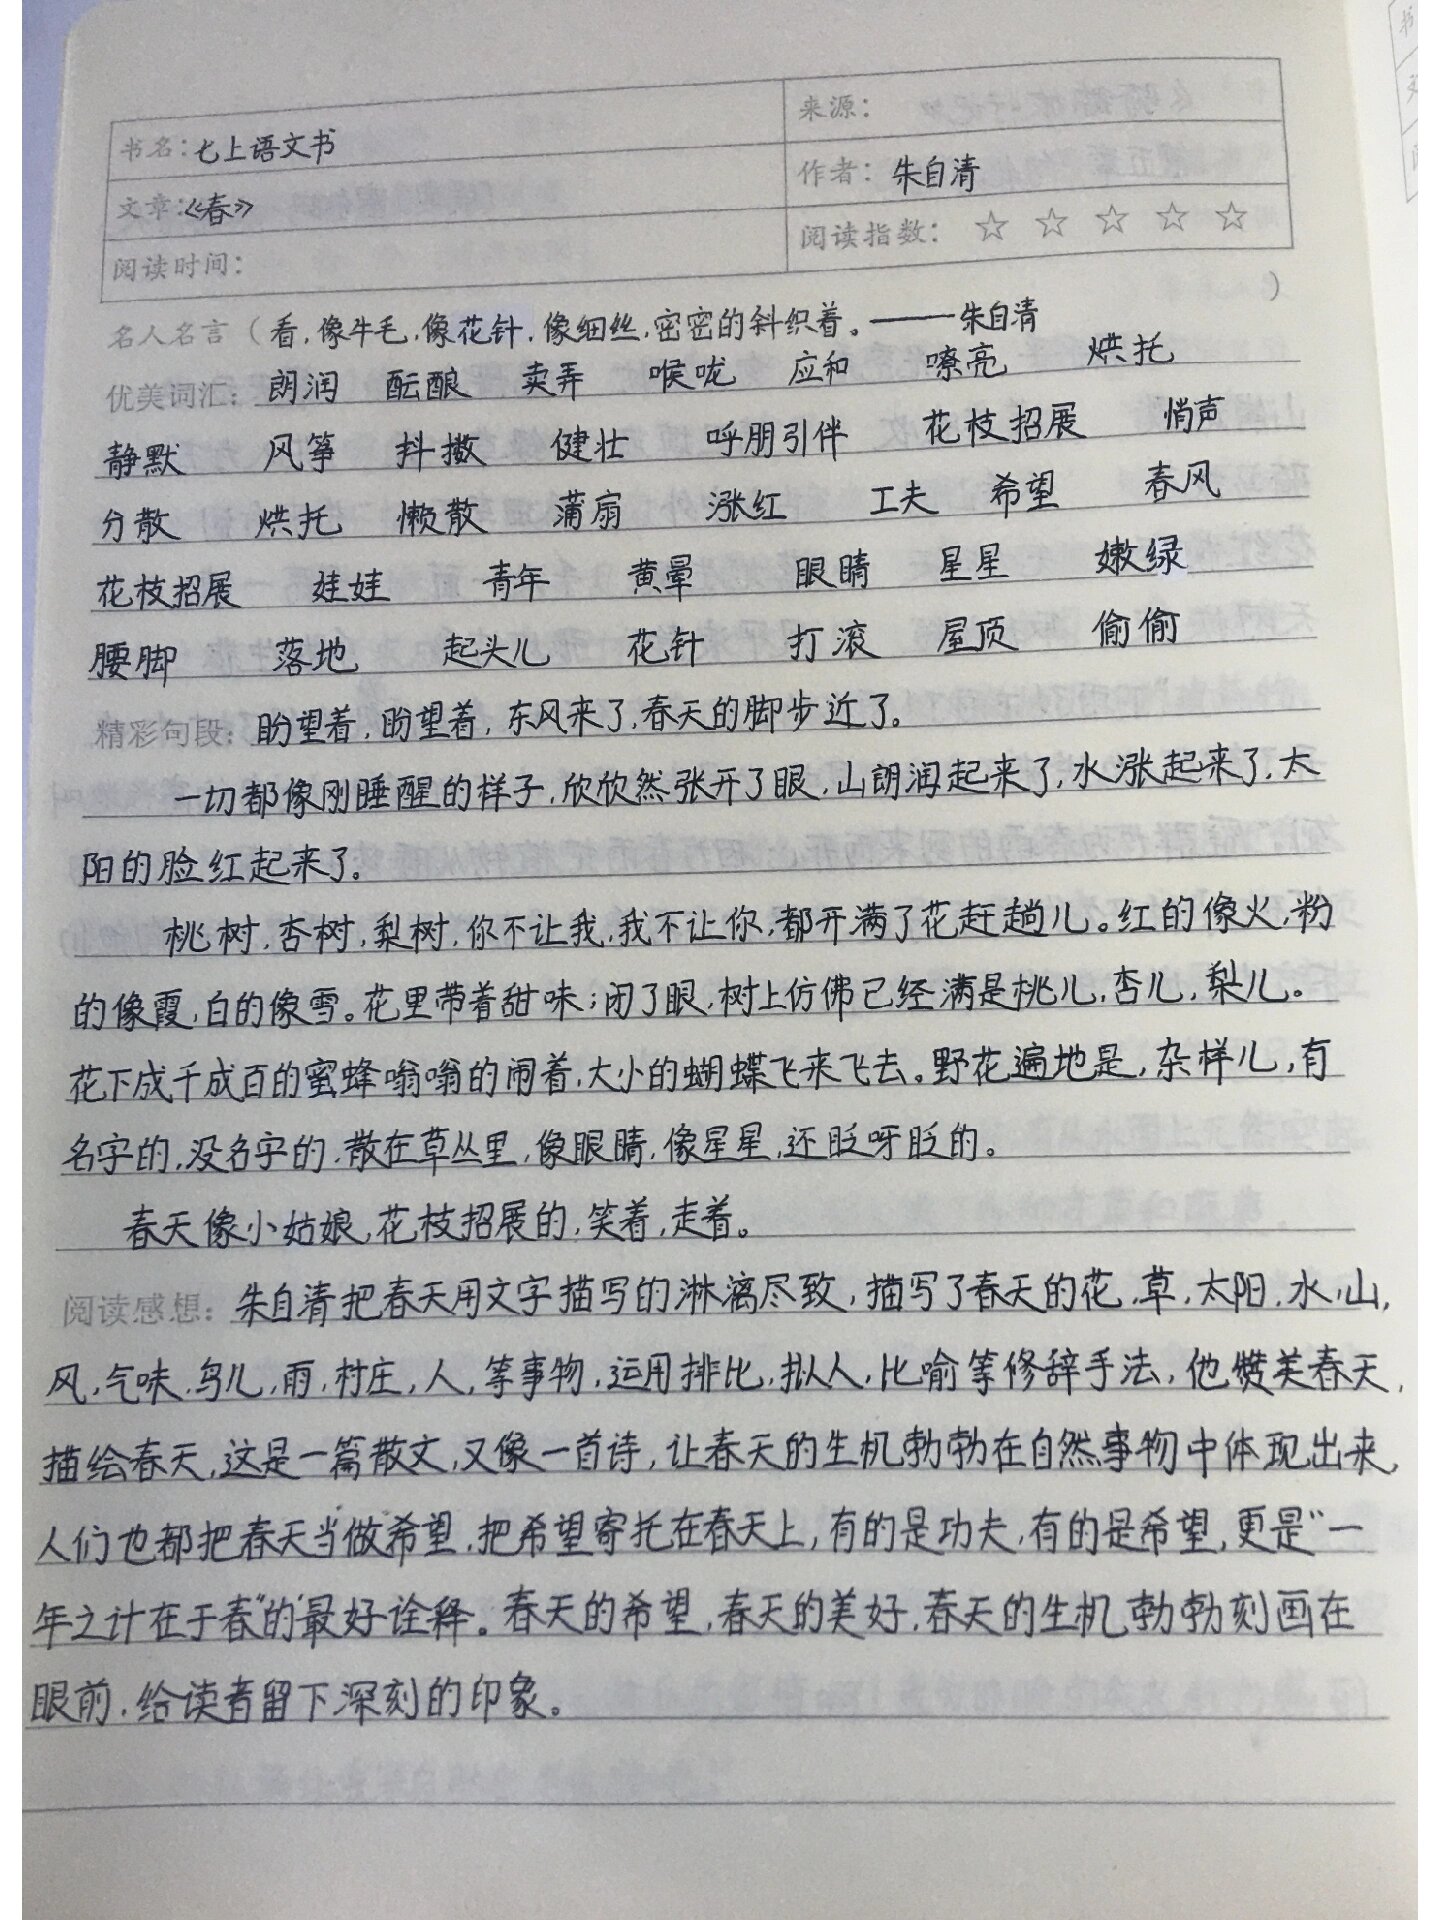 书名：七上语文书 来源：
文章：《春》 作者：朱自清
阅读时间： 阅读指数：☆ ☆ ☆ ☆ ☆
名人名言（看，像牛毛，像花针，像细丝，密密的斜织着。——朱自清）
优美词汇：朗润 酝酿 卖弄 喉咙 应和 嘹亮 烘托
静默 风筝 抖擞 健壮 呼朋引伴 花枝招展 悄声
分散 烘托 懒散 蒲扇 涨红 工夫 希望 春风
花枝招展 娃娃 青年 黄晕 眼睛 星星 嫩绿
腰脚 落地 起头儿 花针 打滚 屋顶 偷偷
精彩句段：盼望着，盼望着，东风来了，春天的脚步近了。
一切都像刚睡醒的样子，欣欣然张开了眼，山朗润起来了，水涨起来了，太
阳的脸红起来了。
桃树，杏树，梨树，你不让我，我不让你，都开满了花赶趟儿。红的像火，粉
的像霞，白的像雪。花里带着甜味；闭了眼，树上仿佛已经满是桃儿，杏儿，梨儿。
花下成千成百的蜜蜂嗡嗡的闹着，大小的蝴蝶飞来飞去。野花遍地是，杂样儿，有
名字的，没名字的，散在草丛里，像眼睛，像星星，还眨呀眨的。
春天像小姑娘，花枝招展的，笑着，走着。
阅读感想：朱自清把春天用文字描写的淋漓尽致，描写了春天的花，草，太阳，水，山，
风，气味，鸟儿，雨，村庄，人，等事物，运用排比，拟人，比喻等修辞手法，他赞美春天，
描绘春天，这是一篇散文，又像一首诗，让春天的生机勃勃在自然事物中体现出来，
人们也都把春天当做希望，把希望寄托在春天上，有的是功夫，有的是希望，更是“一
年之计在于春”的最好诠释。春天的希望，春天的美好，春天的生机勃勃刻画在
眼前，给读者留下深刻的印象。